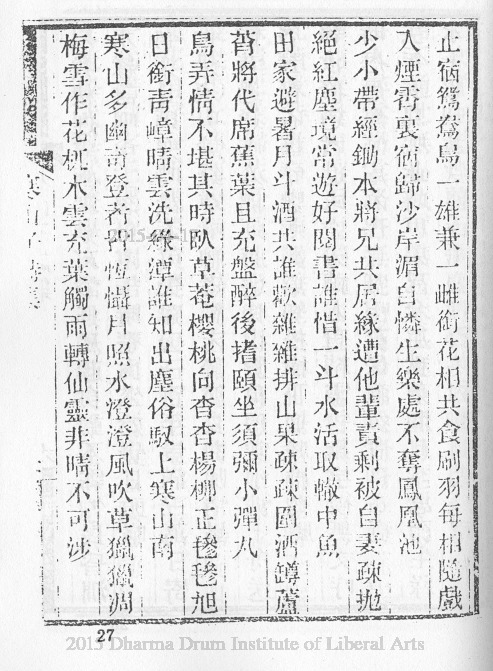 止宿鴛鴦鳥一雄兼一雌銜花相共食刷羽每相隨戲
入煙霄裏宿歸沙岸湄自憐生樂處不奪鳳凰池
少小帶經鋤本將兄共居緣遭他輩責剩被自妻疎拋
絕紅塵境常遊好閱書誰惜一斗水活取轍中魚
田家避暑月斗酒共誰歡雜雜排山果疎疎圍酒罇蘆
莦將代席蕉葉且充盤醉後搘頤坐須彌小彈丸
鳥弄情不堪其時臥草菴櫻桃向杳杳楊柳正毿毿旭
日銜青嶂晴雲洗綠潭誰知出塵俗馭上寒山南
寒山多幽奇登者皆恆懾月照水澄澄風吹草獵獵凋
梅雪作花杌木雲充葉觸雨轉仙靈非晴不可涉
寒山子詩集
27
2015 Dharma Drum Institute of Liberal Arts